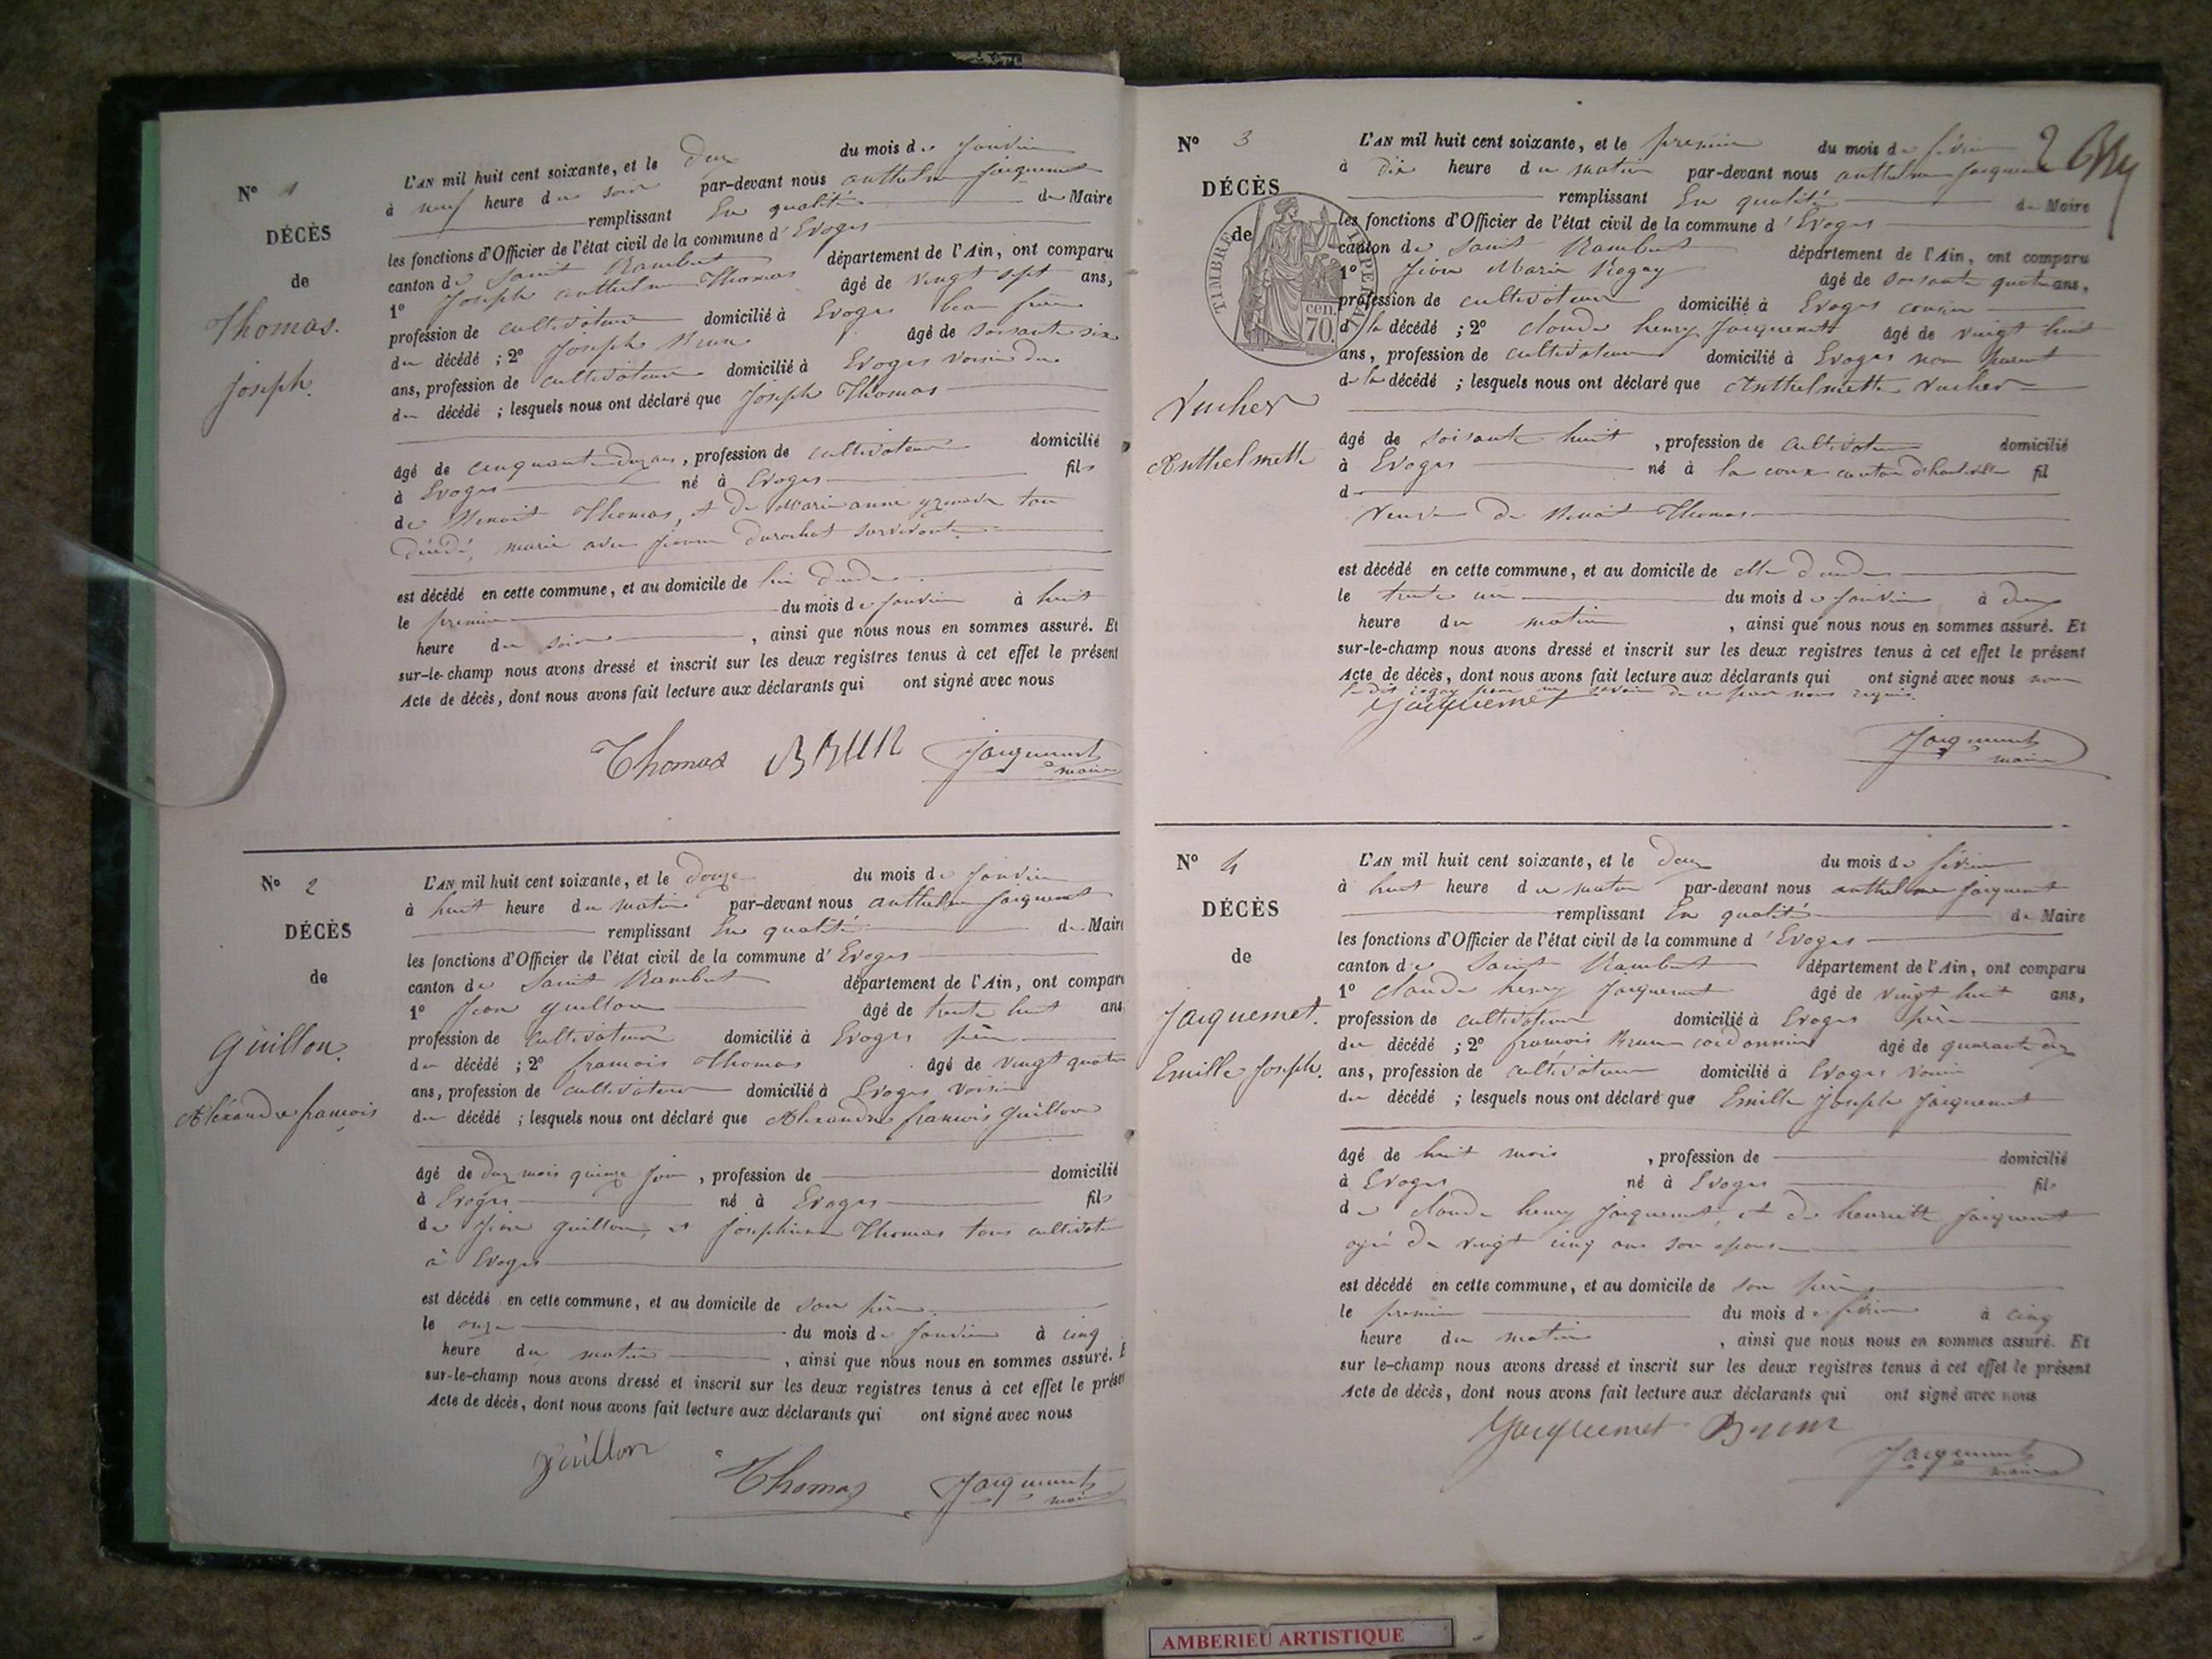 L'AN mil huit cent soixante, et le deux du mois de janvier
N° 1
à neuf heure du soir par-devant nous anthelme jacquemet
remplissant En qualité de Maire
DÉCÈS
les fonctions d'Officier de l'état civil de la commune d'Evoges
canton de Saint Rambert département de l'Ain, ont comparu
de
1° Joseph anthelme Thomas âgé de vingt sept ans,
Thomas.
profession de cultivateur domicilié à Evoges beau frère
du décédé ; 2° Joseph Brun âgé de soisante six
ans, profession de cultivateur domicilié à Evoges voisin du
joseph.
du décédé ; lesquels nous ont déclaré que Joseph Thomas
âgé de cinquante deux ans, profession de cultivateur domicilié
à Evoges né à Evoges fils
de Benoit Thomas, et de Marianne tou
décédé, marié avec jeanne survivante
est décédé en cette commune, et au domicile de lui
le premier du mois de janvier à huit
heure du soir, ainsi que nous nous en sommes assuré. Et
sur-le-champ nous avons dressé et inscrit sur les deux registres tenus à cet effet le présent
Acte de décès, dont nous avons fait lecture aux déclarants qui ont signé avec nous
Thomas BRUN Jacquemet
maire
N° 2
L'AN mil huit cent soixante, et le douze du mois de janvier
à huit heure du matin par-devant nous anthelme jacquemet
DÉCÈS
remplissant En qualité de Maire
les fonctions d'Officier de l'état civil de la commune d'Evoges
de
canton de Saint Rambert département de l'Ain, ont comparu
1° Jean guillon âgé de trente huit ans
Guillon.
profession de cultivateur domicilié à Evoges père
du décédé ; 2° francois Thomas âgé de vingt quatre
ans, profession de cultivateur domicilié à Evoges voisin
Aléxandre francois
du décédé ; lesquels nous ont déclaré que Alexandre francois guillon
âgé de deux mois quinze jour, profession de domicilié
à Evoges né à Evoges fils
de Jean guillon, et Josephine Thomas tous cultivateur
à Evoges
est décédé en cette commune, et au domicile de son père
le onze du mois de janvier à cinq
heure du matin, ainsi que nous nous en sommes assuré. E
sur-le-champ nous avons dressé et inscrit sur les deux registres tenus à cet effet le présen
Acte de décès, dont nous avons fait lecture aux déclarants qui ont signé avec nous
guillon
Thomas Jacquemet
maire
N° 3
L'AN mil huit cent soixante, et le premier du mois de février 2
à dix heure du matin par-devant nous anthelme jacquemet
DÉCÈS
remplissant En qualité de Maire
les fonctions d'Officier de l'état civil de la commune d'Evoges
de
canton de Saint Rambert département de l'Ain, ont comparu
TIMBRE IMPERIAL
1° Jean Marie Rogay âgé de soisante quatre ans,
cen.
profession de cultivateur domicilié à Evoges cousin
70.
d la décédé ; 2° claude henry Jacquemet âgé de vingt huit
ans, profession de cultivateur domicilié à Evoges non parent
de la décédé ; lesquels nous ont déclaré que Anthelmette Vucher
Vucher
Anthelmette
âgé de soisante huit, profession de cultivateur domicilié
à Evoges né à la coux canton d'hauteville fil
d
Veuve de Benoit Thomas
est décédé en cette commune, et au domicile de elle
le trente un du mois de janvier à deux
heure du matin, ainsi que nous nous en sommes assuré. Et
sur-le-champ nous avons dressé et inscrit sur les deux registres tenus à cet effet le présent
Acte de décès, dont nous avons fait lecture aux déclarants qui ont signé avec nous non
le dit rogay pour ne savoir de ce par nous requis.
Jacquemet
Jacquemet
maire
N° 4
L'AN mil huit cent soixante, et le deux du mois de février
à huit heure du matin par-devant nous anthelme jacquemet
DÉCÈS
remplissant En qualité de Maire
les fonctions d'Officier de l'état civil de la commune d'Evoges
de
canton de Saint Rambert département de l'Ain, ont comparu
1° claude henry Jacquemet âgé de vingt huit ans,
Jacquemet.
profession de cultivateur domicilié à Evoges père
du décédé ; 2° francois Brun cordonnier âgé de quarante
Emille Joseph.
ans, profession de cultivateur domicilié à Evoges voisin
du décédé ; lesquels nous ont déclaré que Emille Joseph Jacquemet
âgé de huit mois, profession de domicilié
à Evoges né à Evoges fils
de claude henry Jacquemet, et de henriette jacquemet
agée de vingt cinq ans son epouse
est décédé en cette commune, et au domicile de son père
le premier du mois de février à cinq
heure du matin, ainsi que nous nous en sommes assuré. Et
sur le-champ nous avons dressé et inscrit sur les deux registres tenus à cet effet le présent
Acte de décès, dont nous avons fait lecture aux déclarants qui ont signé avec nous
Jacquemet Brun
Jacquemet
maire
AMBERIEU ARTISTIQUE